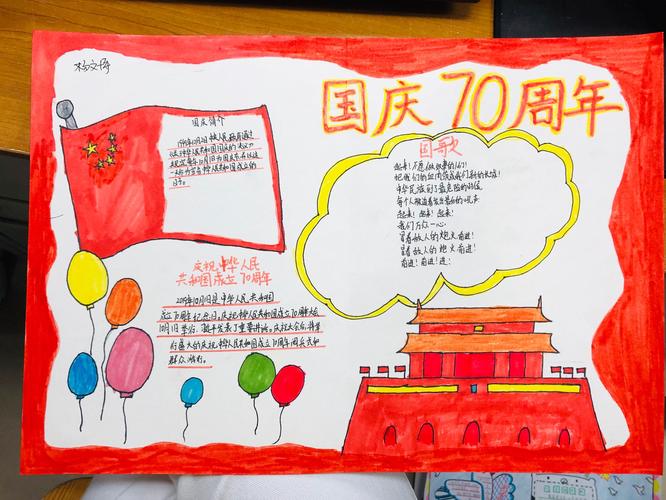 国庆70周年
国庆简介
1949年12月2日中央人民政府通过
一天作为宣告中华人民共和国成立的
日子。
国歌
起来!不愿做奴隶的人们!
把我们的血肉筑成我们新的长城!
中华民族到了最危险的时候
每个人被迫着发出最后的吼声
起来!起来!起来!
我们万众一心
冒着敌人的炮火前进!
冒着敌人的炮火前进!
前进!前进!进!
庆祝中华人民
共和国成立70周年
2019年10月1日是中华人民共和国
成立70周年纪念日。庆祝中华人民共和国成立70周年大会
10月1日举行,
行盛大的庆祝中华人民共和国成立70周年阅兵式和
群众游行。